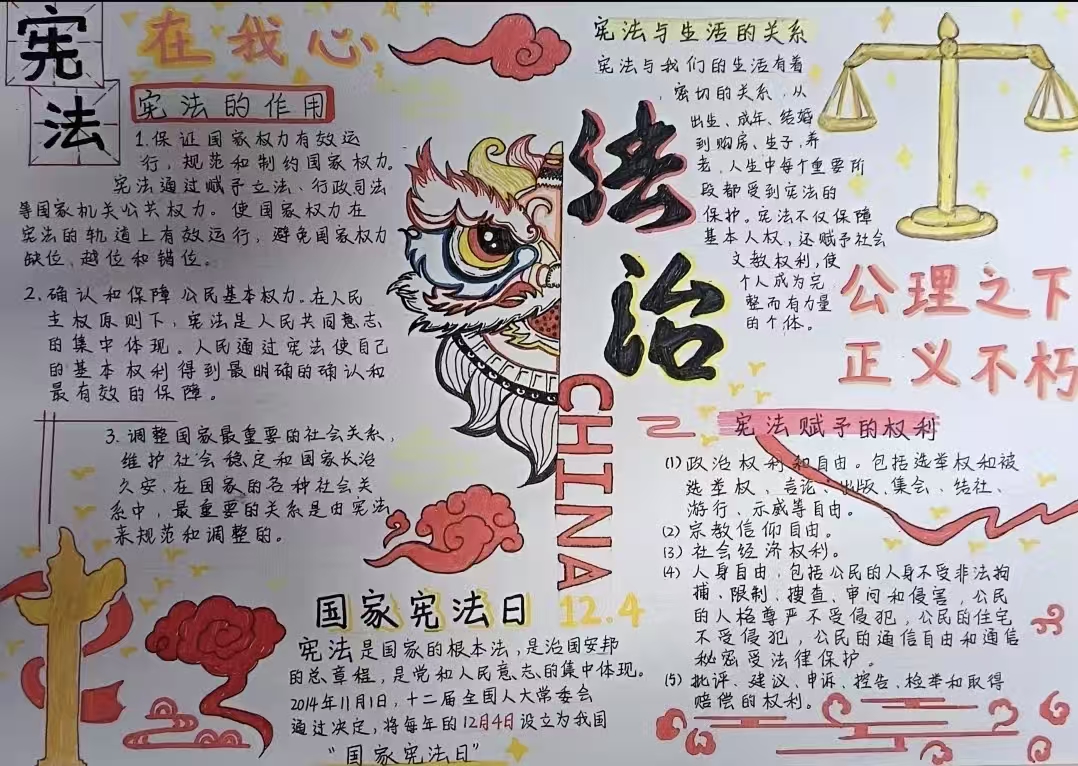 宪法
在我心
宪法的作用
1.保证国家权力有效运
行，规范和制约国家权力。
宪法通过赋予立法、行政司法
等国家机关公共权力。使国家权力在
宪法的轨道上有效运行，避免国家权力
缺位、越位和错位。
2.确认和保障公民基本权力。在人民
主权原则下，宪法是人民共同意志
的集中体现。人民通过宪法使自己
的基本权利得到最明确的确认和
最有效的保障。
3.调整国家最重要的社会关系，
维护社会稳定和国家长治
久安、在国家的各种社会关
系中，最重要的关系是由宪法
来规范和调整的。
国家宪法日 12.4
宪法是国家的根本法，是治国安邦
的总章程，是党和人民意志的集中体现。
2014年11月1日，十二届全国人大常委会
通过决定，将每年的12月4日设立为我国
“国家宪法日”
法治
CHINA
宪法与生活的关系
宪法与我们的生活有着
密切的关系，从
出生、成年、结婚
到购房、生子、养
老，人生中每个重要阶
段都受到宪法的
保护。宪法不仅保障
基本人权，还赋予社会
文教权利，使
个人成为完
整而有力量
的个体。
公理之下
正义不朽
宪法赋予的权利
(1)政治权利和自由。包括选举权和被
选举权、言论、出版、集会、结社、
游行、示威等自由。
(2)宗教信仰自由。
(3)社会经济权利。
(4)人身自由，包括公民的人身不受非法拘
捕、限制、搜查、审问和侵害，公民
的人格尊严不受侵犯，公民的住宅
不受侵犯，公民的通信自由和通信
秘密受法律保护。
(5)批评、建议、申诉、控告、检举和取得
赔偿的权利。